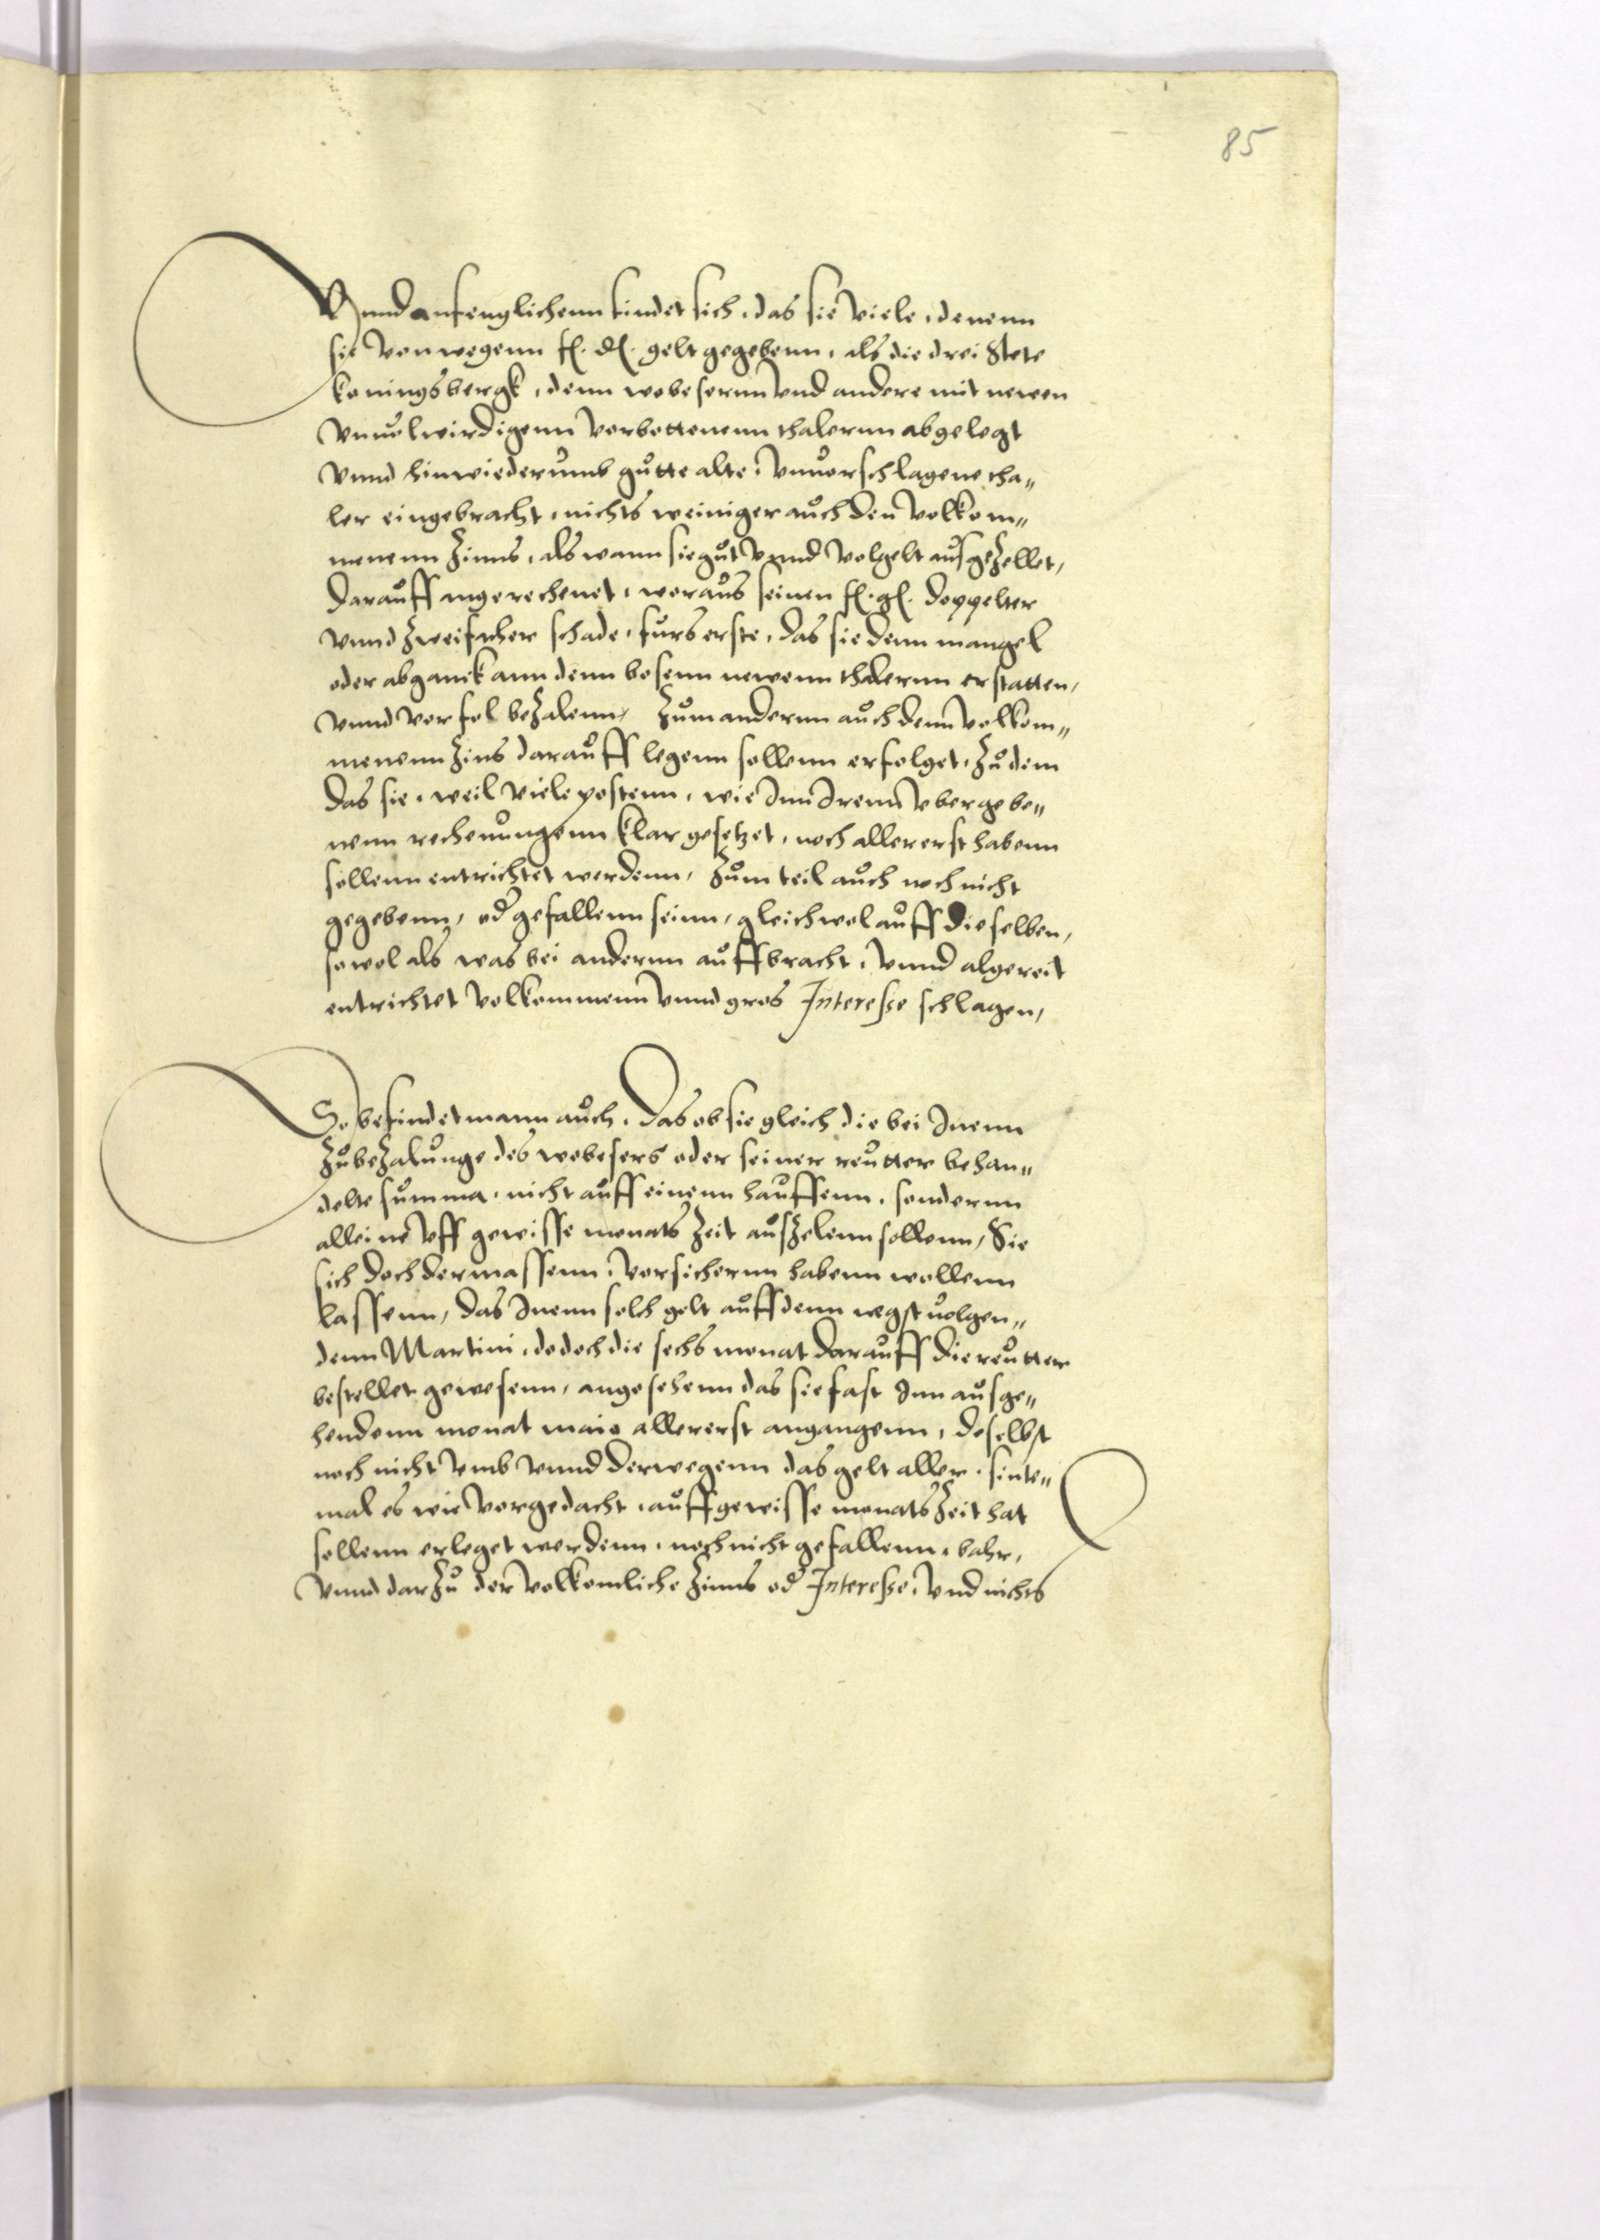 85
Vnnd anfenglichenn findet sich, das sie viele, denenn
sie vonwegenn fl. dl. gelt gegebenn, als die drei Stete
konings bergk, denn wobesernn vnd andere mit newen
vnuolwirdigenn verbottenenn thalernn abgelegt
vnnd hinwiederumb gutte alte, vnuerschlagene tha„
ler eingebracht, nichts weiniger auch den volkom„
menenn Zinns, als wann sie gut vnnd vol gelt ausgezellet,
darauff angerechenet, woraus seinen fl. gl. doppelter
vnnd zweifacher schade, furs erste, das sie denn mangel
oder abganck ann denn bosenn newenn thalernn erstatten,
vnnd vor fol bezalenn, Zum andernn auch denn volkom„
menenn Zins darauff legenn sollenn erfolget, Zu dem
das sie, weil viele postenn, wie Inn Irenn vbergebe„
nenn rechenungenn klar gesetzet, noch allererst habenn
sollenn entrichtet werdenn, Zum teil auch noch nicht
gegebenn, od gefallenn seinn, gleichwol auff dieselben,
sowol als was bei andernn auffbracht, vnnd algereit
entrichtet volkommenn vnnd gros Interesse schlagen,
So befindet mann auch, das ob sie gleich die bei Inenn
Zu bezalunge des wobesers oder seiner reutter behan„
delte summa, nicht auff einenn hauffenn, sondernn
alleine vff gewisse monats Zeit auszelenn sollenn, Sie
sich doch dermassenn, versichernn habenn wollenn
lassenn, das Inenn solch gelt auff denn negstuolgen„
denn Martini, do doch die sechs monat darauff die reutter
bestellet gewesenn, angesehenn das sie fast Inn ausge„
hendenn monat maio allererst angangenn, doselbst
noch nicht vmb vnnd derwegenn das gelt aller, sinte„
mal es wie vorgedacht, auff gewisse monats Zeit hat
sollenn erleget werdenn, noch nicht gefallenn, bahr,
vnnd darzu der volkomliche Zinns od Interesse, vnd nichts